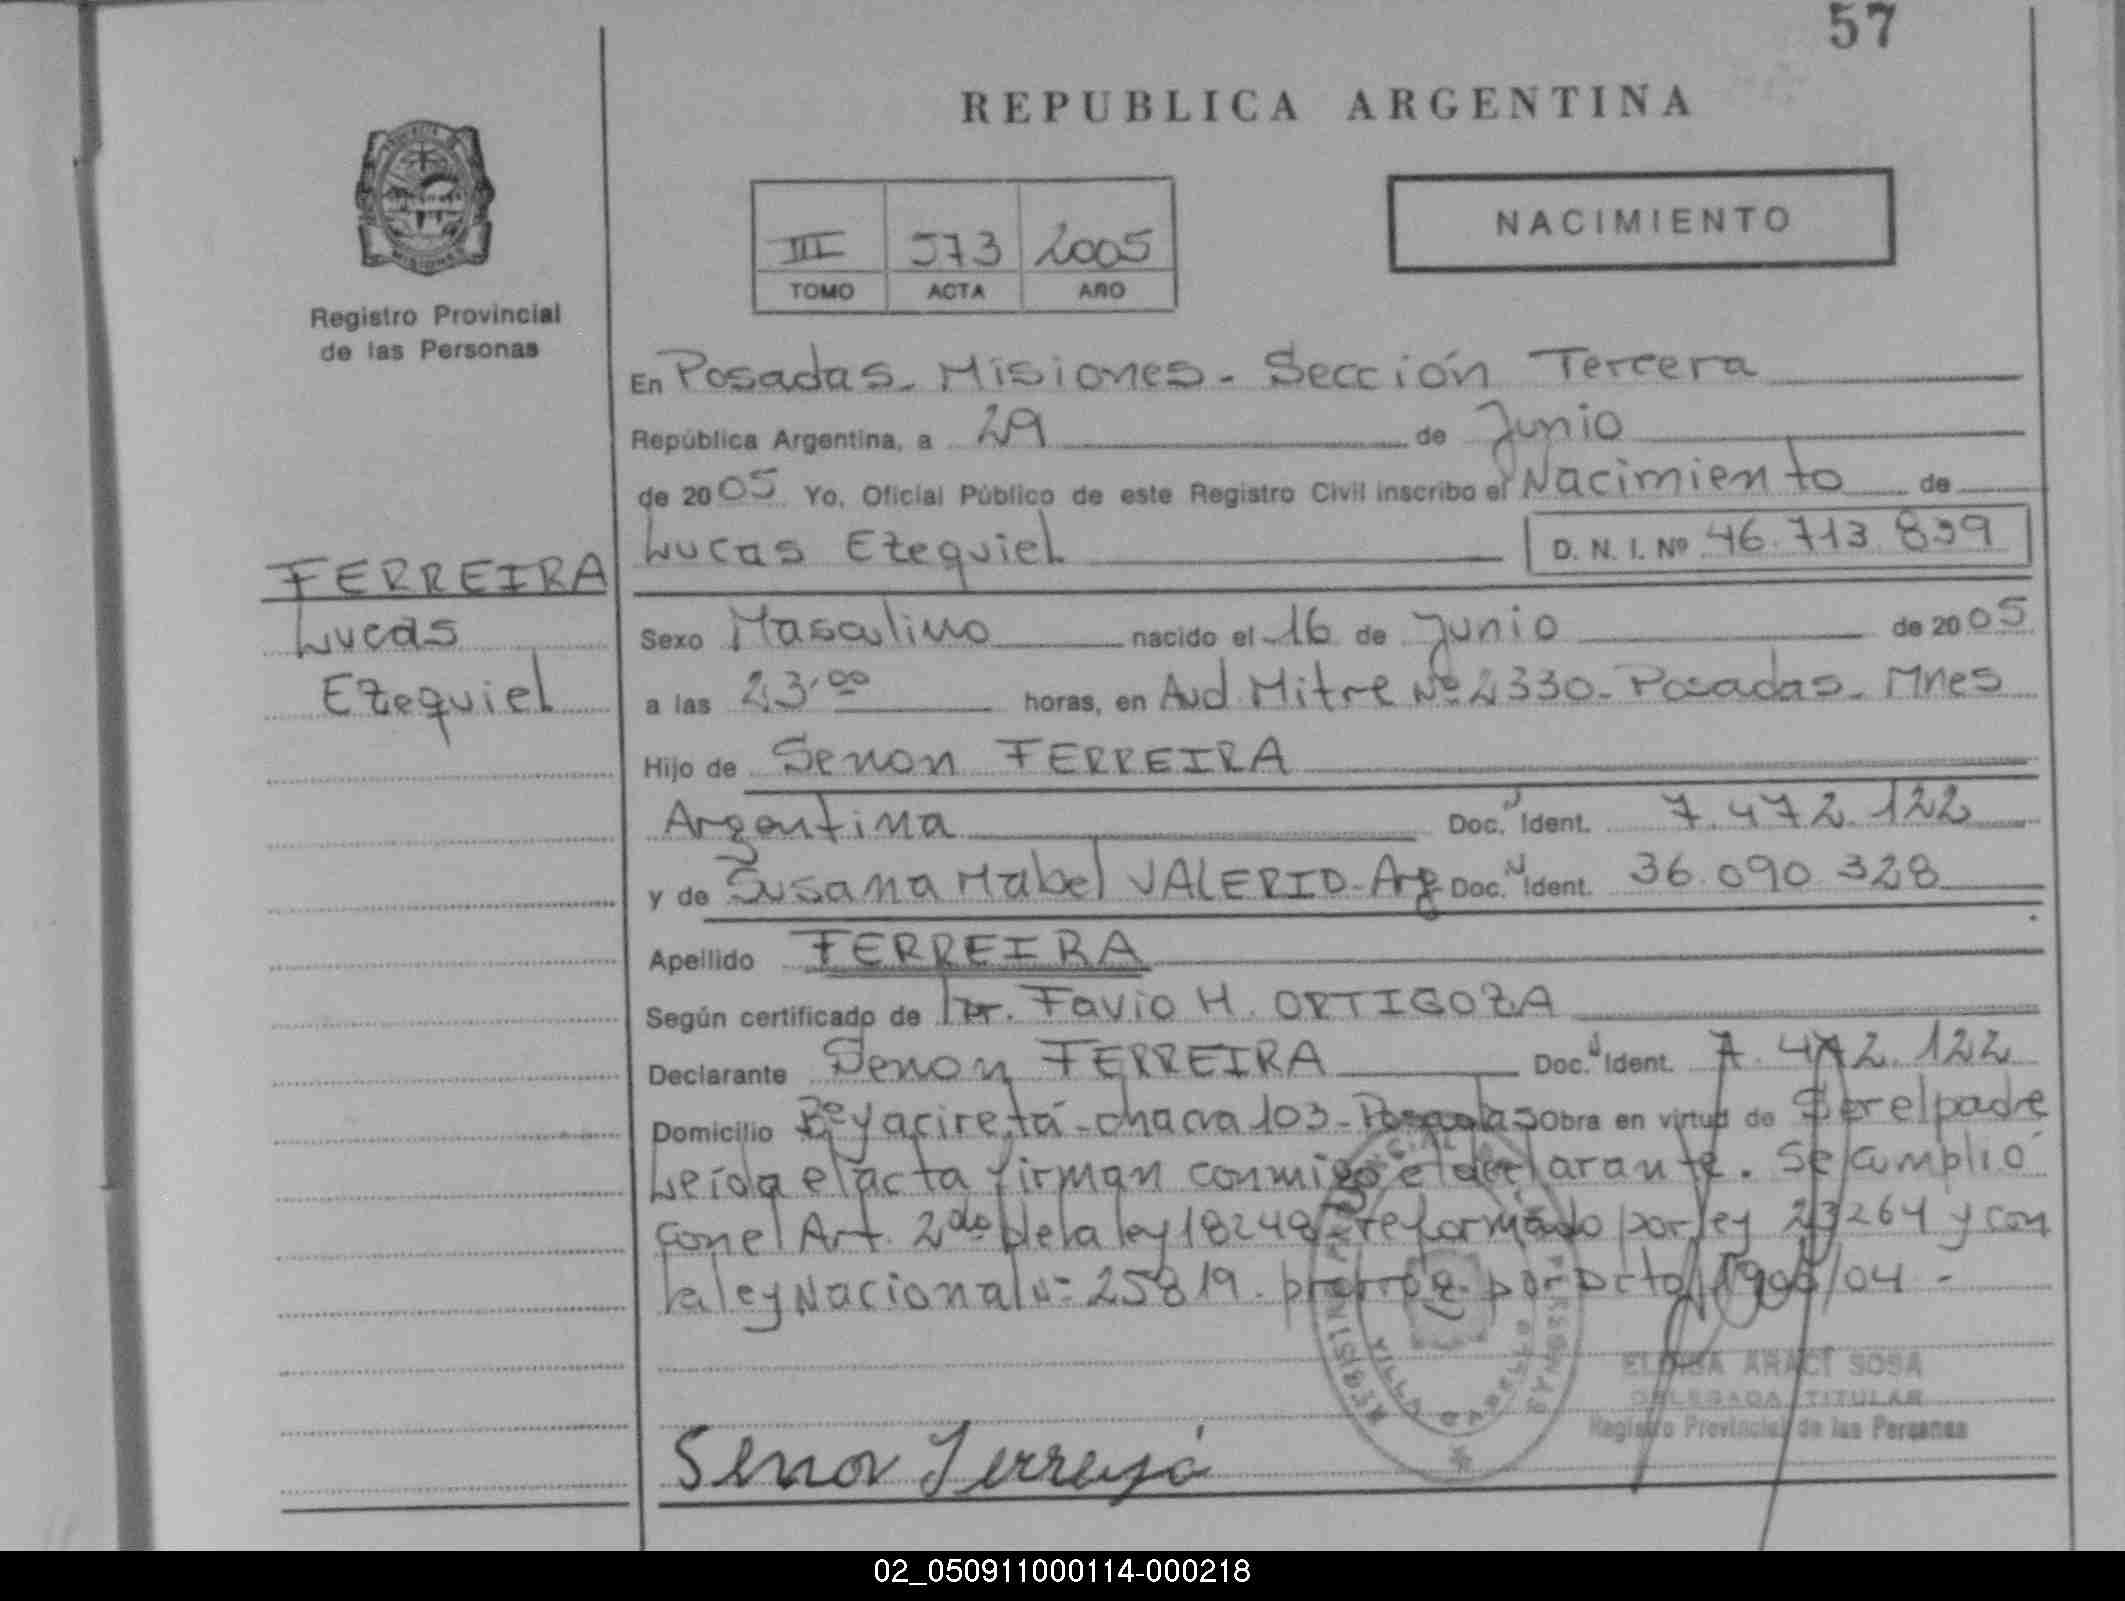 57
REPUBLICA ARGENTINA
NACIMIENTO
III 573 2005
TOMO ACTA AÑO
Registro Provincial
de las Personas
En Posadas. Misiones. Sección Tercera
República Argentina, a 29 de Junio
de 2005 Yo, Oficial Público de este Registro Civil inscribo el Nacimiento de
Lucas Ezequiel D. N. I. Nº 46.713.839
FERREIRA
Lucas
Ezequiel
Sexo Masculino nacido el 16 de Junio de 2005
a las 23,00 horas, en Avd. Mitre Nº 2330. Posadas. Mnes
Hijo de Senon FERREIRA
Argentina Doc. Ident. 7.472.122
y de Susana Mabel VALERIO-Arg Doc. Ident. 36.090.328
Apellido FERREIRA
Según certificado de Dr. Favio H. ORTIGOZA
Declarante Senon FERREIRA Doc. Ident. 7.472.122
Domicilio Bº Yaciretá-chacra 103-Posadas Obra en virtud de Ser el padre
Leída el acta firman conmigo el declarante. Se cumplió
con el Art. 2do de la ley 18248 reformado por ley 23264 y con
la ley Nacional Nº 25819. prorrog. por Dcto 1906/04 -
REGISTRO PROVINCIAL DE LAS PERSONAS
VILLA CABELLO
ELOISA ARACÍ SOSA
DELEGADA TITULAR
Registro Provincial de las Personas
Senon Ferreyra
02_050911000114-000218